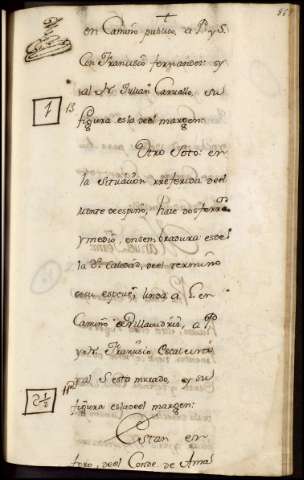 en Camino publico, a P. y S.
Con Francisco fernandez: y
al N. Julian Carvallo, su
figura es la del margen:
Otro Soto: en
la Situacion rreferida del
Monte de espino, haze dos ferra.os
y medio, en sembradura es de
la d.a Calidad, del termino
de su especie, linda a L. en
Camino de Villaudriz, a P.
y N. Francisco Escalente
y al S. esto murado, y su
figura es la del margen:
Estan en
foro, del Conde de Amar
1
13
2 1/2